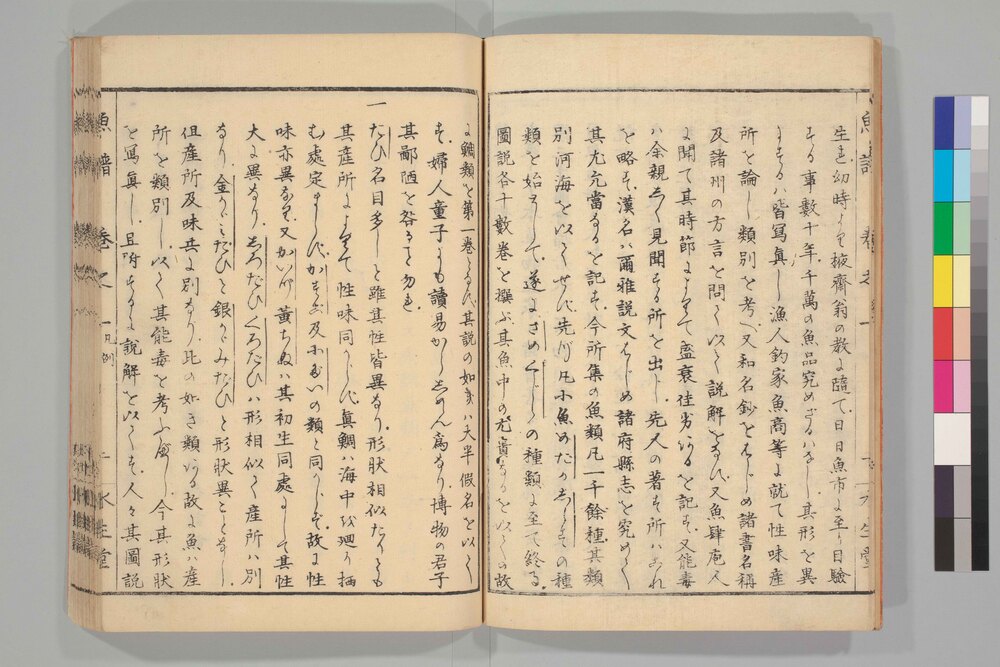 生之幼時より掖齋翁の教に隨て日日魚市に至り日驗
する事數十年千萬の魚品究めざるハなし其形を異
にするハ皆寫眞し漁人釣家魚商等に就て性味産
所を論し類別を考へ又和名鈔をはじめ諸書名稱
及諸州の方言を問ひ以て説解をなす又魚肆庖人
に聞て其時節によりて盛衰佳劣あるを記す又能毒
ハ余親しく見聞する所を出し先人の著す所ハこれ
を略す漢名ハ爾雅説文はじめ諸府縣志を究めて
其尤允當なるを記す今所集の魚類凡一千餘種其類
別河海を以てせず先つ凡小魚めだかしらすの種
類を始として遂にさめくじらの種類に至て終る
圖説各十數卷を撰ふ其魚中の尤貴なるを以ての故
に鯛類を第一卷となす其説の如きハ大半假名を以て
す婦人童子にも讀易からしめん爲なり博物の君子
其鄙陋を咎る事勿れ
一たひ名目多しと雖其性皆異なり形状相似たりとも
其産所によりて性味同からず眞鯛ハ海中を廻り栖
む處定まらず かすご及小だいの類と同からず故に性
味亦異なり又かいず黄ちぬハ其初生同處にして其性
大に異なり しろだひくろたひハ形相似て産所ハ別
なり 金かゞみだひと銀かゞみたひと形状異ことなし
但産所及味共に別なり此の如き類ある故に魚ハ産
所を類別し以て其能毒を考ふべし今其形状
を寫眞し且附するに説解を以てす人々其圖説
魚譜 卷之一 凡例
二 水生堂